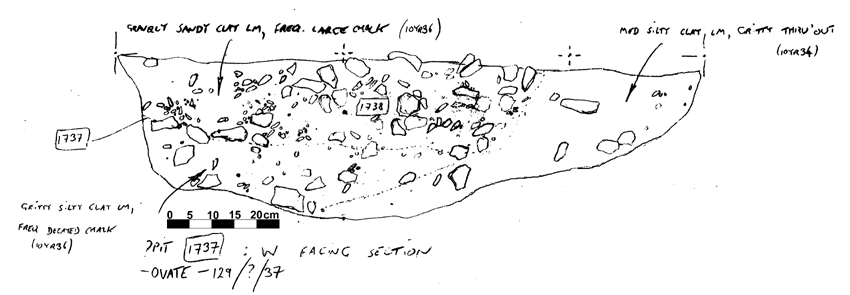 GRAVELY SANDY CLAY LM, FREQ. LARGE CHALK (10YR36)
MED SILTY CLAY LM, GRITTY THRU'OUT
(10YR34)
1738
1737
GRITTY SILTY CLAY LM,
FREQ CHALK
(10YR36)
0 5 10 15 20cm
?PIT 1737 : W FACING SECTION
-OVATE - 129/?/37